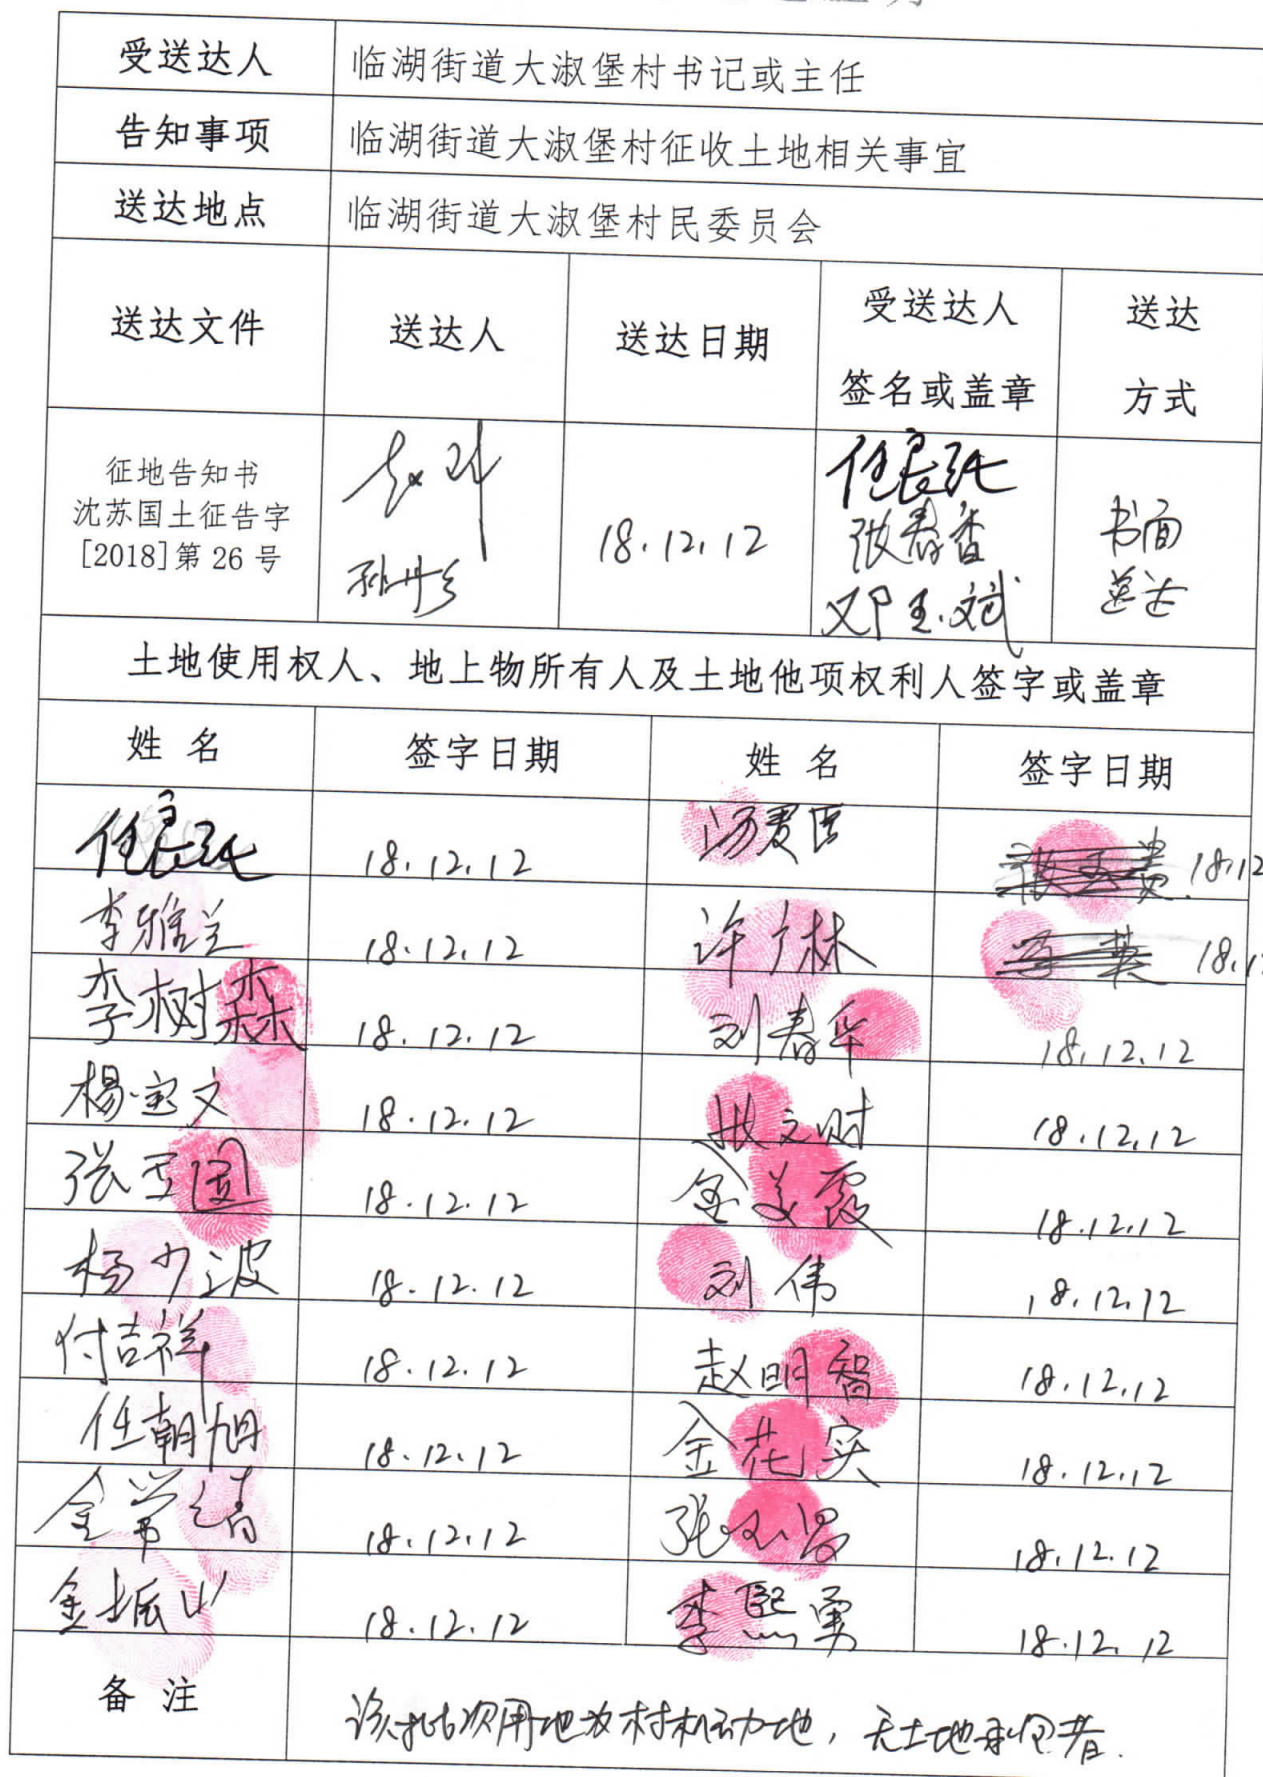 受送达人 临湖街道大淑堡村书记或主任
告知事项 临湖街道大淑堡村征收土地相关事宜
送达地点 临湖街道大淑堡村民委员会
送达文件 送达人 送达日期 受送达人 签名或盖章 送达 方式
征地告知书
沈苏国土征告字
[2018]第 26 号
18.12.12
张春香
邓玉斌
书面
送达
土地使用权人、地上物所有人及土地他项权利人签字或盖章
姓 名 签字日期 姓 名 签字日期
18.12.12 18.12
李雅兰 18.12.12 许广林 18.1
李树森 18.12.12 刘春华 18.12.12
楊宝文 18.12.12 文财 18.12.12
张玉国 18.12.12 金美霞 18.12.12
杨少波 18.12.12 刘伟 18.12.12
付吉祥 18.12.12 赵明智 18.12.12
任朝旭 18.12.12 金花实 18.12.12
18.12.12 18.12.12
金振山 18.12.12 李熙勇 18.12.12
备 注 该批次用地为村机动地，无土地承包者.